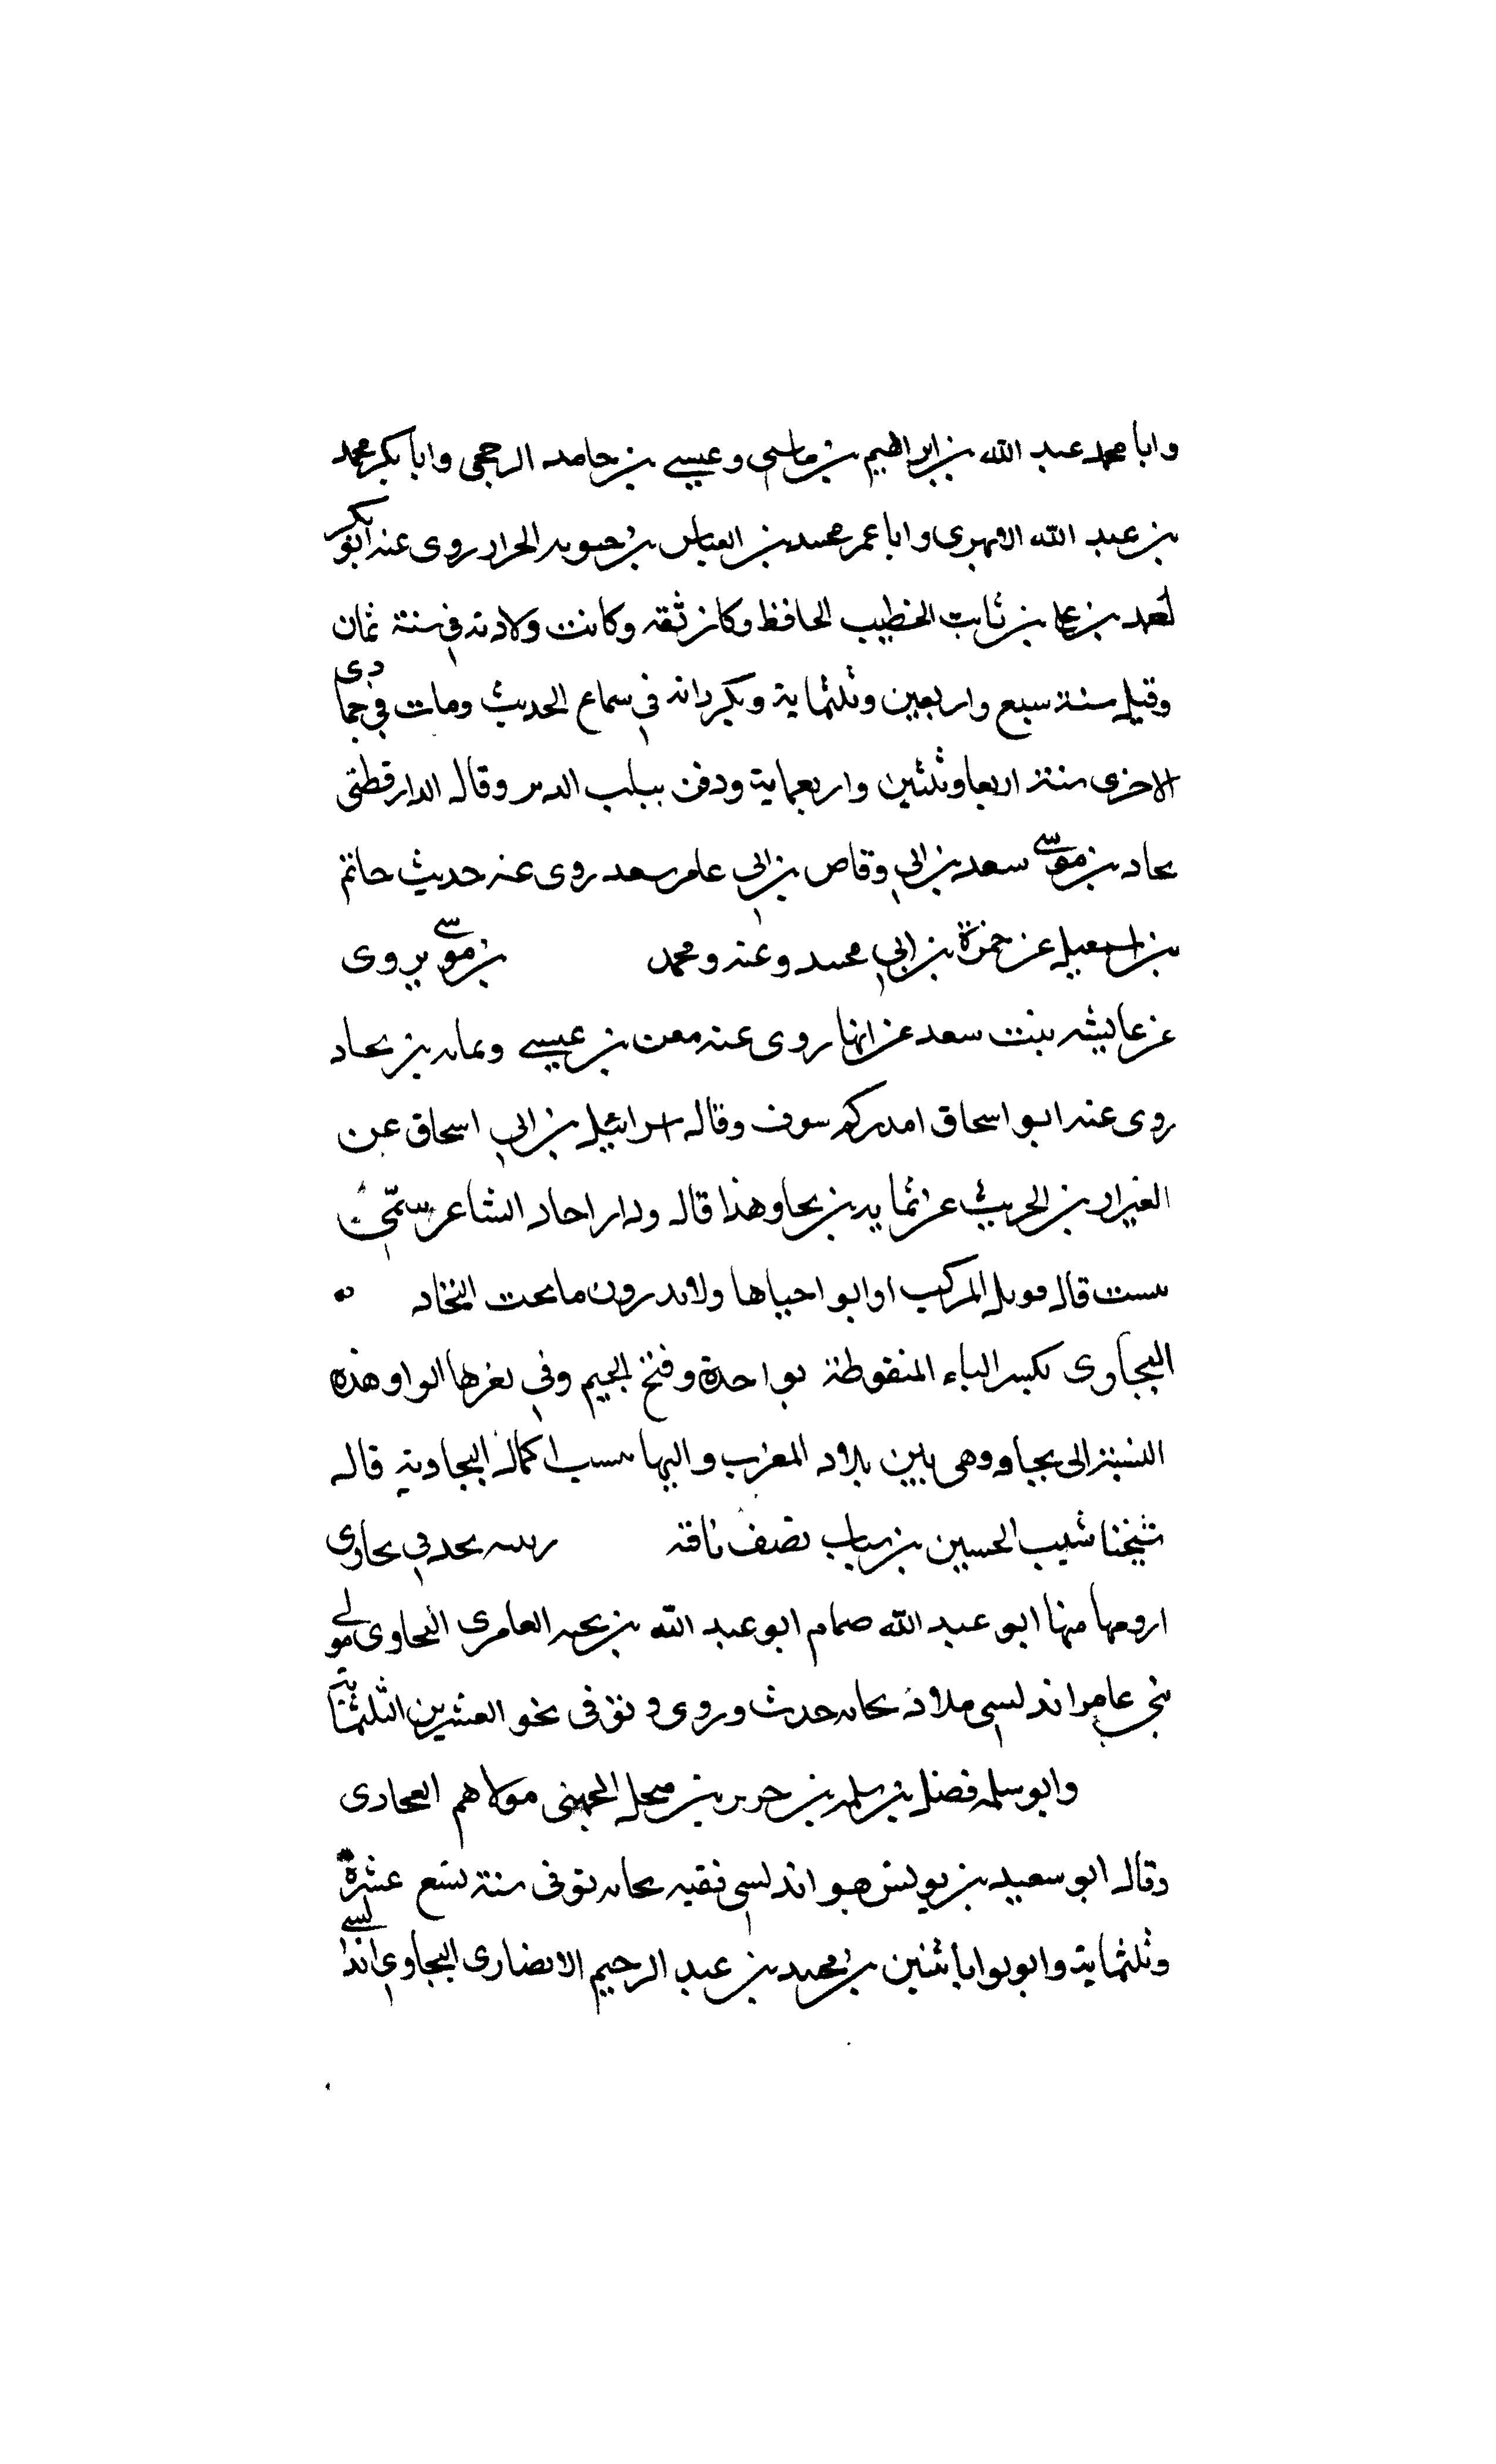 وابا محمد عبد الله بن ابراهيم بن ماسى وعيسى بن حامد الرجحى وابا بكر محمد
بن عبد الله الابهرى وابا عمر محمد بن العباس بن حيويه الحرار روى عنه ابو بكر
احمد بن على بن ثابت الخطيب الحافظ وكان ثقة وكانت ولادته فى سنة ثمان
وقيل سنة سبع واربعين وثلثماية وبكر دانه فى سماع الحديث ومات فى جمادى
الاخرى سنة اربعا وثلثين واربعماية ودفن بباب الدىر وقال الدارقطنى
بحاد بن موسى سعد بن ابى وقاص بن ابى عامر سعد روى عنه حديث حاتم
بن اسمعيل عن حمزة بن ابى محمد وعنه ومحمد بن موسى يروى
عن عايشه بنت سعد عن ابيها روى عنه معن بن عيسى وىمامه بن بحاد
روى عنه ابو اسحاق امدركم سوف وقال اسرائيل بن ابى اسحاق عن
العيزار بن الحريث عن ثمايه بن بحاو هذا قال ودار احاد الشاعر سمى
ىست قال فويل المركب او ابو احياها ولا ىدرون ما ىحت البحاد
البجاوى بكسر الباء المنقوطة بواحدة وفتح الجيم وفى اخرها الواو هذه
النسبة الى بجاو وهى بين بلاد المغرب واليها ىىسب اكمال البجاوية قال
شيخنا شيب الحسين بن ىىاب نصف ناقة بحاوى
منها ابو عبد الله صمام ابو عبد الله بن بحىه العامرى البحاوى مولى
بنى عامر اندلسى ملاذ بحانه حدث وروى وتوفى نحو العشرين الثلثماية
وابو سلمه فضل بن سلمه بن حرير بن منحل الجهنى مولاهم البحادى
وقال ابو سعيد بن يونس هو اندلسى فقيه بحانه توفى سنة تسع عشرة
وثلثماية وابو بن محمد بن عبد الرحيم الانصارى البجاوى اندلسى